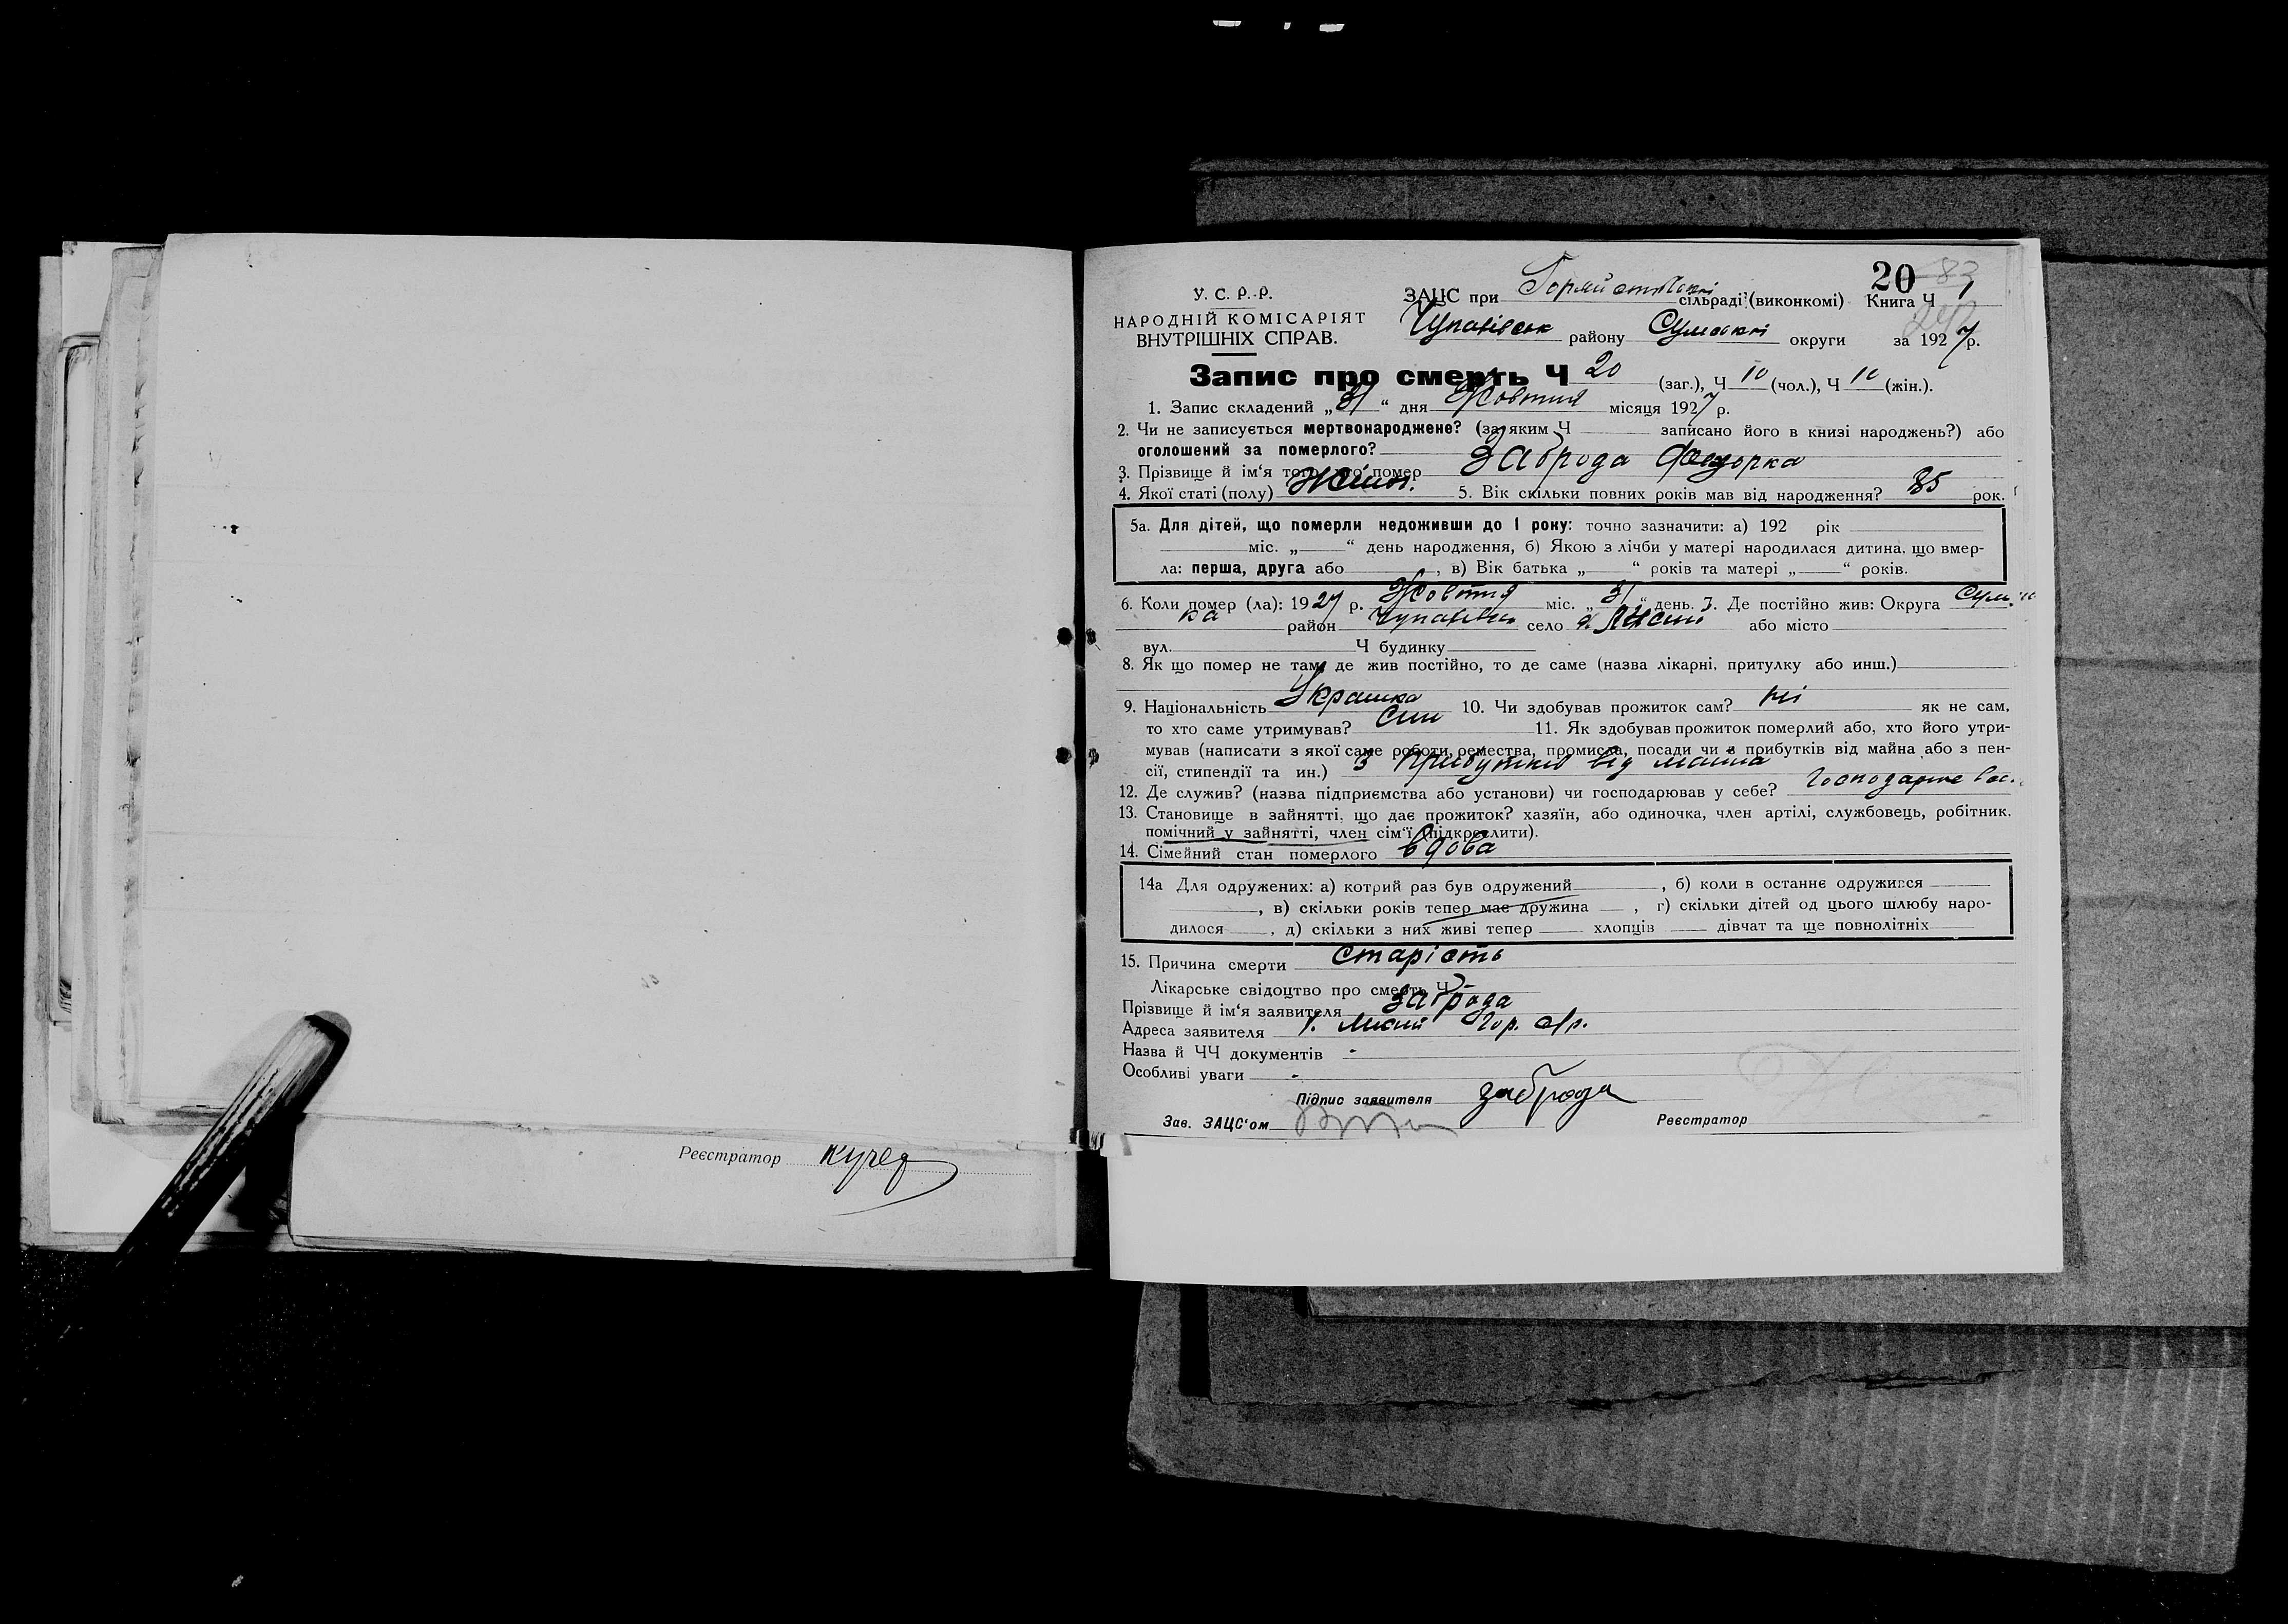 Реєстратор
20 83
У. С. Р. Р.
НАРОДНІЙ КОМІСАРІЯТ
ВНУТРІШНІХ СПРАВ.
ЗАЦС при сільраді (виконкомі) Книга Ч 1
району Сумської округи за 1927 р.
Запис про смерть Ч 20 (заг.), Ч 10 (чол.), Ч 10 (жін.).
1. Запис складений „31“ дня Жовтня місяця 1927 р.
2. Чи не записується мертвонароджене? (за яким Ч записано його в книзі народжень?) або
оголошений за померлого?
3. Прізвище й ім‘я того, хто помер Заброда Федорка
4. Якої статі (полу) Жіноч. 5. Вік скільки повних років мав від народження? 85 рок.
5а. Для дітей, що померли недоживши до 1 року: точно зазначити: а) 192 рік
міс. „ “ день народження, б) Якою з лічби у матері народилася дитина, що вмер-
ла: перша, друга або , в) Вік батька „ “ років та матері „ “ років.
6. Коли помер (ла): 1927 р. Жовтня міс. „31“ день. 7. Де постійно жив: Округа Сумсь
ка район село х. Лисий або місто
вул. Ч будинку
8. Як що помер не там де жив постійно, то де саме (назва лікарні, притулку або инш.)
9. Національність Українка 10. Чи здобував прожиток сам? ні як не сам,
то хто саме утримував? Син 11. Як здобував прожиток померлий або, хто його утри-
мував (написати з якої саме роботи, ремества, промисла, посади чи з прибутків від майна або з пен-
сії, стипендії та ин.) З прибутків від майна
12. Де служив? (назва підприємства або установи) чи господарював у себе?
13. Становище в зайнятті, що дає прожиток? хазяїн, або одиночка, член артілі, службовець, робітник,
помічний у зайнятті, член сім‘ї (підкреслити).
14. Сімейний стан померлого вдова
14а Для одружених: а) котрий раз був одружений , б) коли в останнє одружився
, в) скільки років тепер має дружина , г) скільки дітей од цього шлюбу наро-
дилося , д) скільки з них живі тепер хлопців дівчат та ще повнолітніх
15. Причина смерти старість
Лікарське свідоцтво про смерть Ч -
Прізвище й ім‘я заявителя Заброда
Адреса заявителя х. Лисий Гор. с/р.
Назва й ЧЧ документів -
Особливі уваги -
Підпис заявителя Заброда
Зав. ЗАЦС‘ом Реєстратор